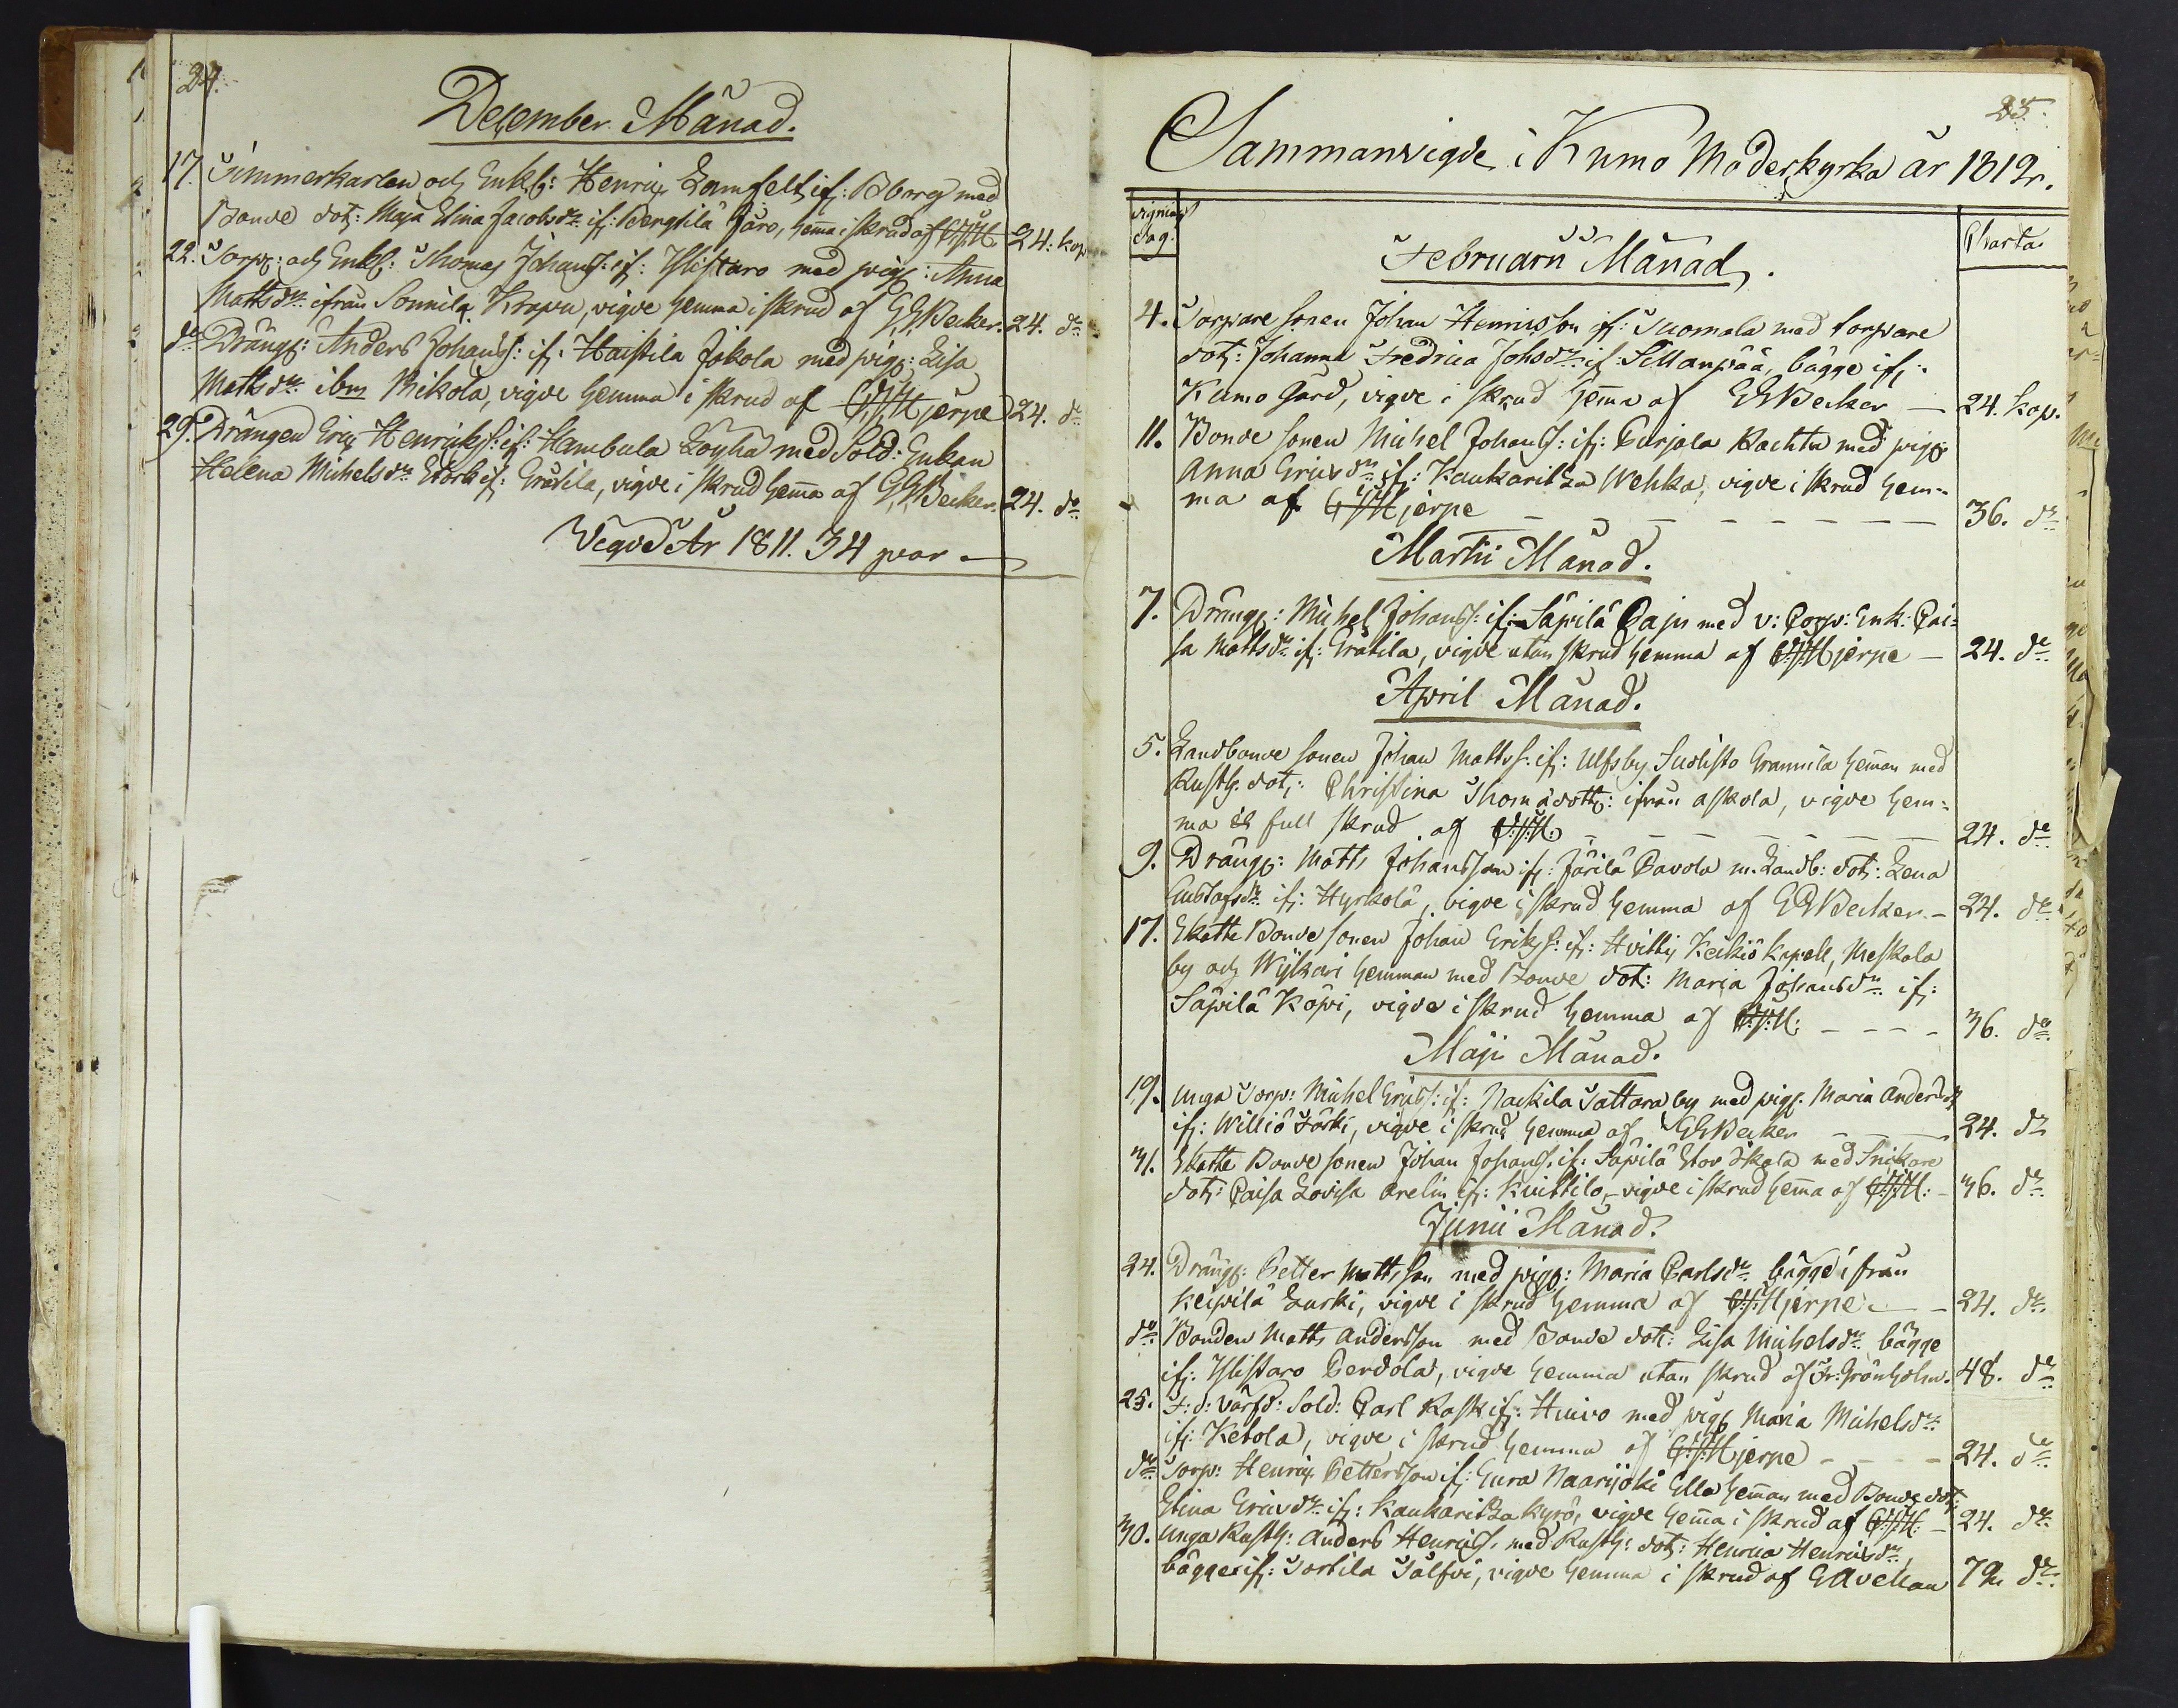 24.
December Månad.
17. Timmerkarlen och Enkl: Henric Lamfelt if: Bborg med
Bonde dot: Maja Elina Jacobsdr if: Bergtilä Järo, hema i skrud af GJH 24. kop
22. Torp: och Enkl: Thomas Johanss: if: Ylistaro med pig: Anna
Mattsdr ifrån Sonnila Krapu, vigde hemma i skrud af GGBecker. 24. do
do Dräng: Anders Johanss: if: Haistila Jokola med pig: Lisa
Mattsdr ibm Rikola, vigde hemma i skrud af GJHjerpe 24. do
29. Drängen Eric Henrickss: if: Lambula Löyhä med Sold: Enkan
Helena Michelsdr Stork if: Gråtila, vigde i skrud hema af GGBecker. 24. do
Vigde År 1811. 34 par
25
Sammanvigde i Kumo Moderkyrka år 1812.
Vignings
dag.
Charta
Februarii Månad.
4. Torpare sonen Johan Henricsson if: Suomala med torpare
dot: Johanna Fredrica Johsdr if: Sillanpää, bägge if:
Kumo Gård, vigde i skrud hema af GGBecker 24. kop.
11. Bonde sonen Michel Johanss: if: Carjala Rachtu med pig:
Anna Ericsdr if: Kaukaritza Wehka, vigde i skrud hem-
ma af GJHjerpe 36. do
Martii Månad.
7. Dräng: Michel Johanss: if: Säpilä Paju med v: Corp: Enk: Cai-
sa Mattsdr if: Gråtila, vigde utan skrud hemma af GJHjerpe 24. do
April Månad.
5. Landbonde sonen Johan Mattss: if: Ulfsby Suolisto Grannila heman med
Rusth. dot: Christina Thomädott: ifrån Askola, vigde hem-
ma i full skrud af GJH: 24. do
9. Dräng: Matts Johansson if: Järilä Pavola m. Landb: dot: Lena
Gustafsdr if: Hyrkölä, vigde i skrud hemma af GGBecker 24. do
17. Skatte Bonde sonen Johan Erikss: if: Hvittis Keikiö Kapell, Meskala
by och Wijkari hemman med Bonde dot: Maria Johansdr if:
Säpilä Köpi, vigde i skrud hemma af GJH: 36. do
Maji Månad.
19. Unga Torp: Michel Ericss: if: Nackila Tattara by med pig: Maria Andersdr
if: Williö Törki, vigde i skrud hemma af GGBecker 24. do
31. Skatte Bonde sonen Johan Johanss: if: Säpilä Stor Ikala med Snickare
dot: Caisa Lovisa Arelin if: Kvittilo, vigde i skrud hema af GJH: 36. do
Junii Månad.
24. Dräng: Petter Mattsson med pig: Maria Carlsdr bägge ifrån
Keipilä Lurki, vigde i skrud hemma af GJHjerpe 24. do
do Bonden Matts Andersson med Bonde dot: Lisa Michelsdr bägge
if: Ylistaro Perdola, vigde hemma utan skrud af Fr: Grönholm. 48. do
25. F: d: värfd: Sold: Carl Rask if: Huivo med pig: Maria Michelsdr
if: Ketola, vigde i skrud hemma af GJHjerpe 24. do
do Torp: Henric Pettersson if: Eura Naarijöki Ella heman med Bonde dot:
Stina Ericsdr if: Kaukaritza Kyrö, vigde hema i skrud af GJH: 24. do
30. Unga Rusth: Anders Henricss: med Rusth: dot: Henrica Henricsdr
bägge if: Tortila Tälfvi, vigde hemma i skrud af GAvellan 72 do